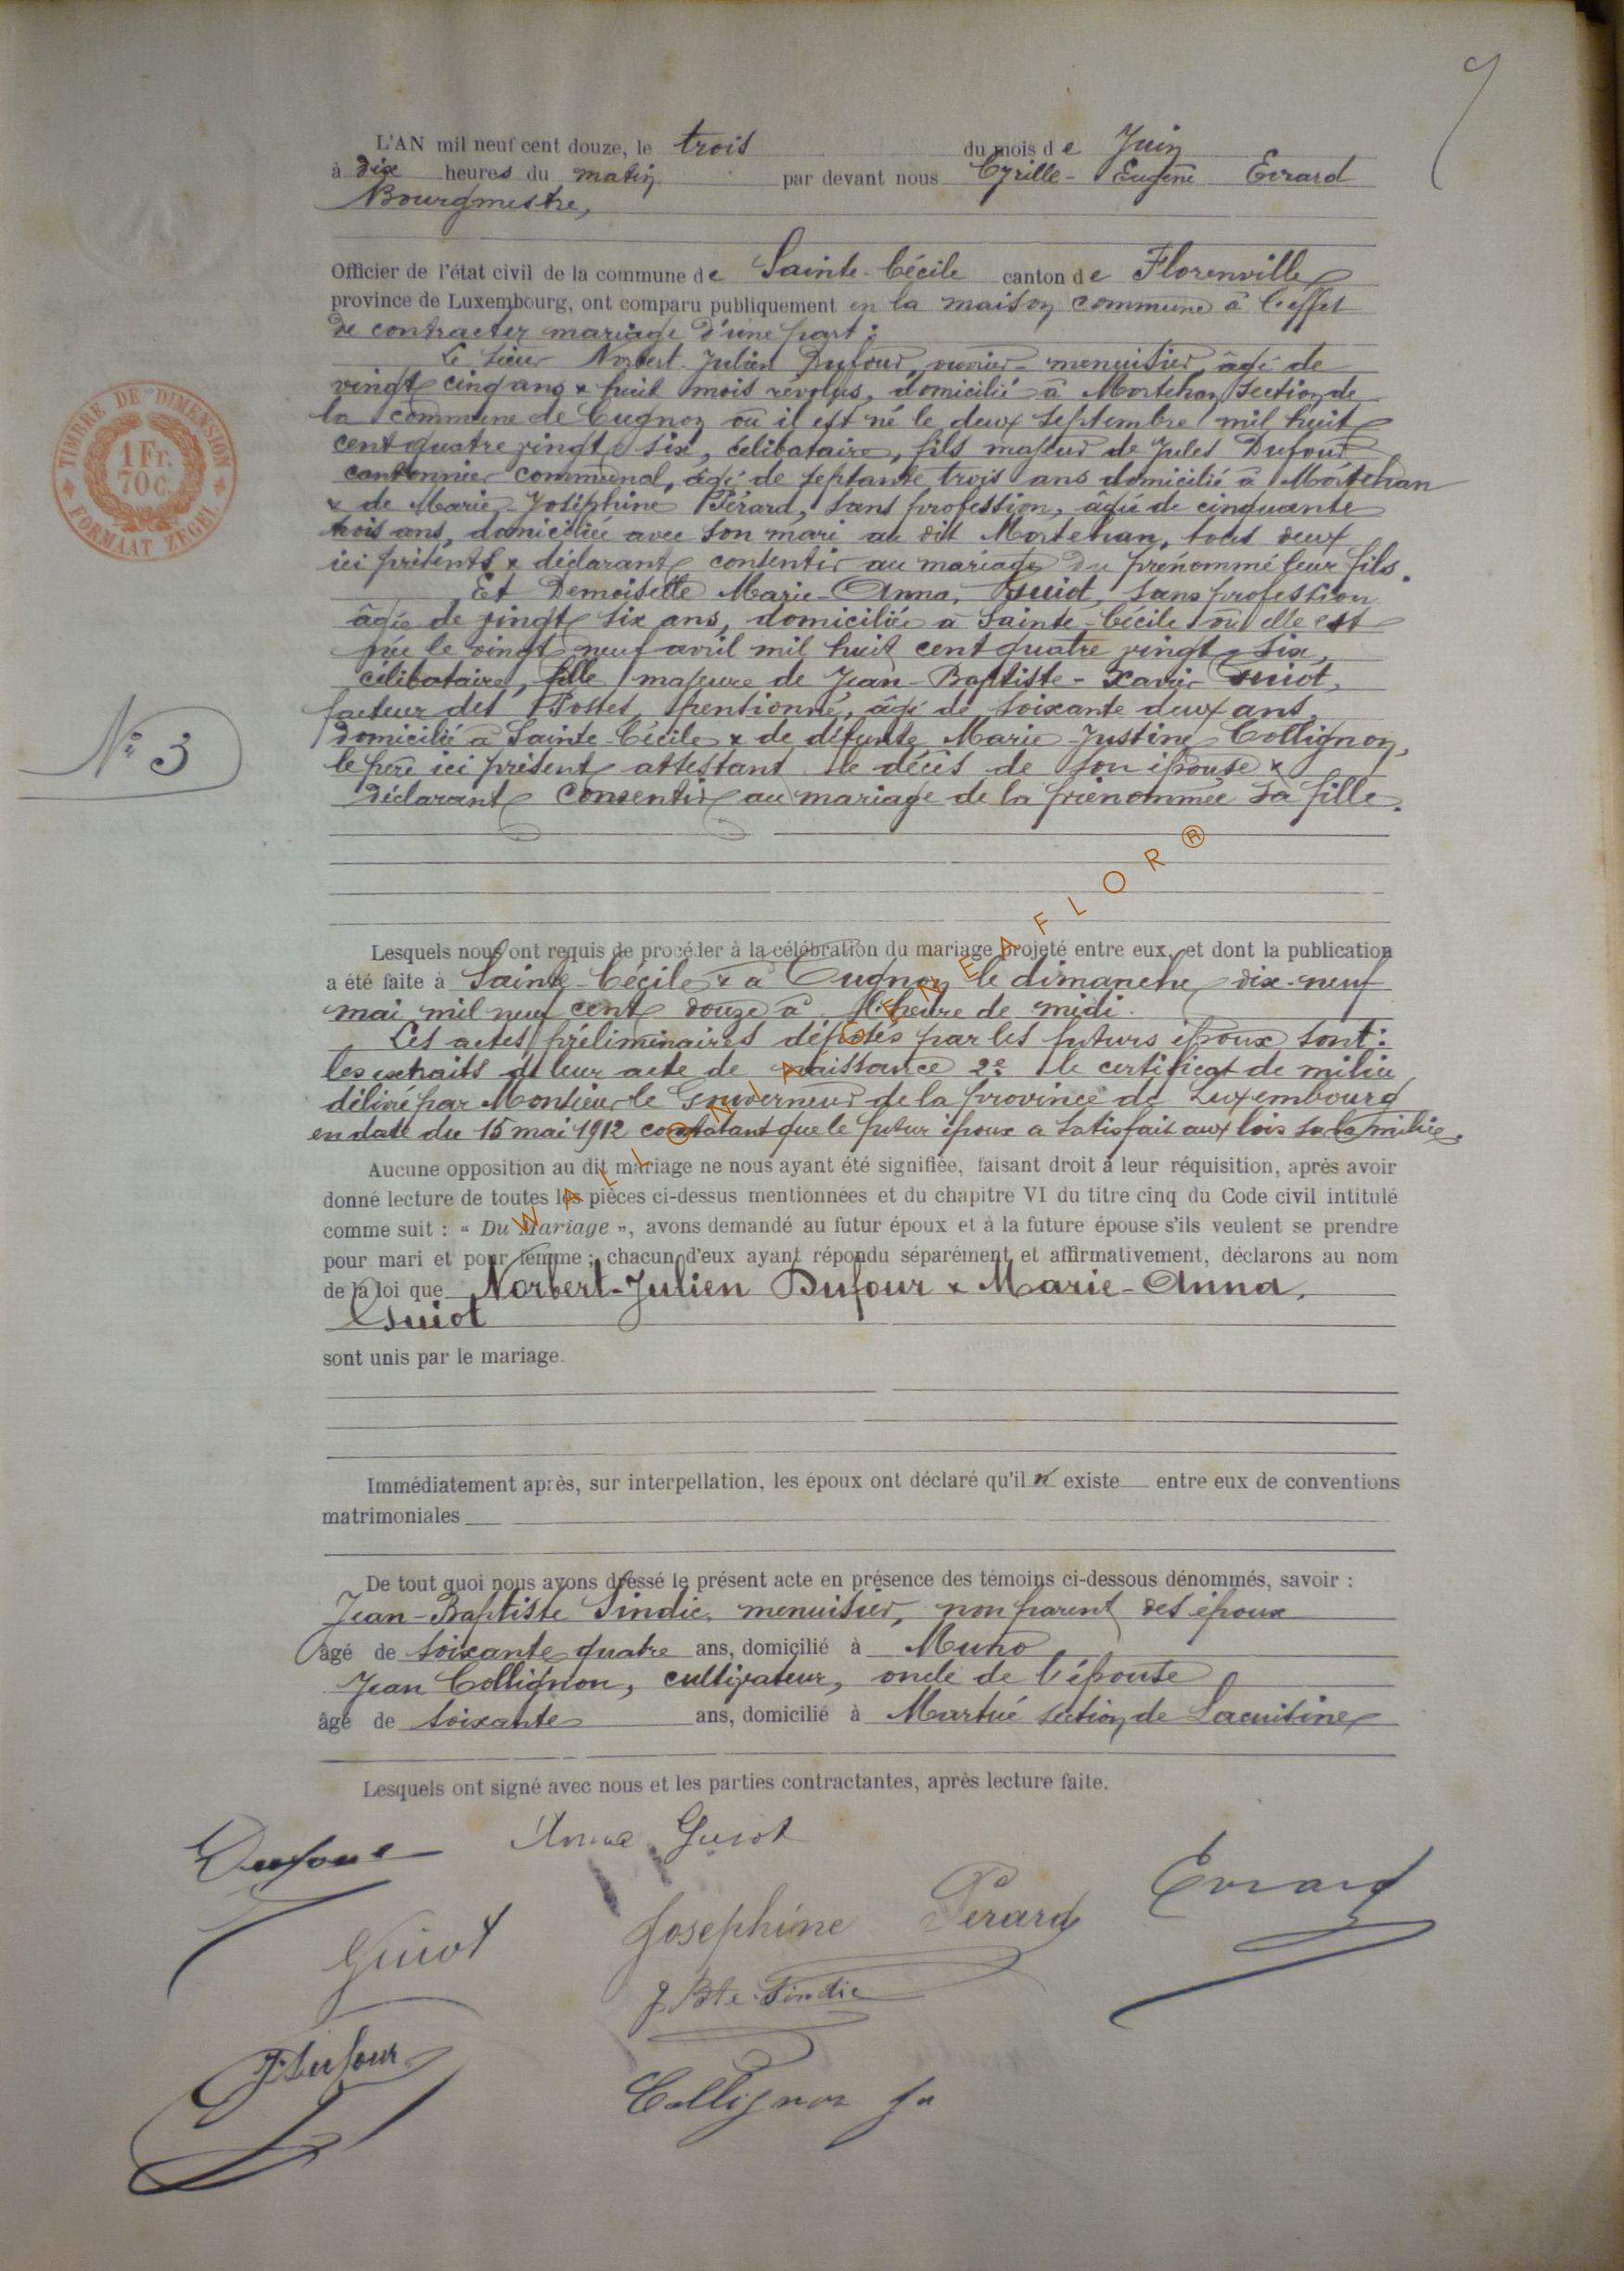 9
L'AN mil neuf cent douze, le trois du mois de Juin
à dix heures du matin par devant nous Cyrille-Eugène Evrard
Bourgmestre,
Officier de l'état civil de la commune de Sainte-Cécile canton de Florenville
province de Luxembourg, ont comparu publiquement en la maison commune à l'effet
de contracter mariage d'une part :
Le sieur Norbert-Julien Dufour, ouvrier-menuisier, âgé de
vingt cinq ans & huit mois révolus, domicilié à Mortehan section de
la commune de Cugnon où il est né le deux septembre mil huit
cent quatre vingt six, célibataire, fils majeur de Jules Dufour
cantonnier communal, âgé de septante trois ans domicilié à Mortehan
& de Marie-Joséphine Pérard, sans profession, âgée de cinquante
trois ans, domiciliée avec son mari au dit Mortehan, tous deux
ici présents & déclarant consentir au mariage du prénommé leur fils.
Et Demoiselle Marie-Anna, Guiot, sans profession
âgée de vingt six ans, domiciliée à Sainte-Cécile où elle est
née le vingt neuf avril mil huit cent quatre vingt six,
célibataire, fille majeure de Jean-Baptiste-Xavier Guiot,
facteur des Postes pensionné, âgé de soixante deux ans,
domicilié à Sainte-Cécile & de défunte Marie-Justine Collignon,
le père ici présent attestant le décès de son épouse &
déclarant consentir au mariage de la prénommée sa fille.
N° 3
TIMBRE DE DIMENSION
1 Fr. 70 c.
FORMAAT ZEGEL
Lesquels nous ont requis de procéder à la célébration du mariage projeté entre eux, et dont la publication
a été faite à Sainte-Cécile & à Cugnon le dimanche dix-neuf
mai mil neuf cent douze à l'heure de midi.
Les actes préliminaires déposés par les futurs époux sont :
les extraits de leur acte de naissance 2° le certificat de milice
délivré par Monsieur le Gouverneur de la province de Luxembourg
en date du 15 mai 1912 constatant que le futur époux a satisfait aux lois sur la milice.
Aucune opposition au dit mariage ne nous ayant été signifiée, faisant droit à leur réquisition, après avoir
donné lecture de toutes les pièces ci-dessus mentionnées et du chapitre VI du titre cinq du Code civil intitulé
comme suit : « Du Mariage », avons demandé au futur époux et à la future épouse s'ils veulent se prendre
pour mari et pour femme ; chacun d'eux ayant répondu séparément et affirmativement, déclarons au nom
de la loi que Norbert-Julien Dufour & Marie-Anna,
Guiot
sont unis par le mariage.
Immédiatement après, sur interpellation, les époux ont déclaré qu'il n'existe entre eux de conventions
matrimoniales
De tout quoi nous avons dressé le présent acte en présence des témoins ci-dessous dénommés, savoir :
Jean-Baptiste Sindic, menuisier, non parent des époux
âgé de soixante quatre ans, domicilié à Muno
Jean Collignon, cultivateur, oncle de l'épouse
âgé de soixante ans, domicilié à Martué section de Lacuisine
Lesquels ont signé avec nous et les parties contractantes, après lecture faite.
Dufour
Anna Guiot
Evrard
Guiot
Josephine Pérard
J Bte Sindic
J. Dufour
Collignon Jn
WALLONIA GENEAFLOR ®